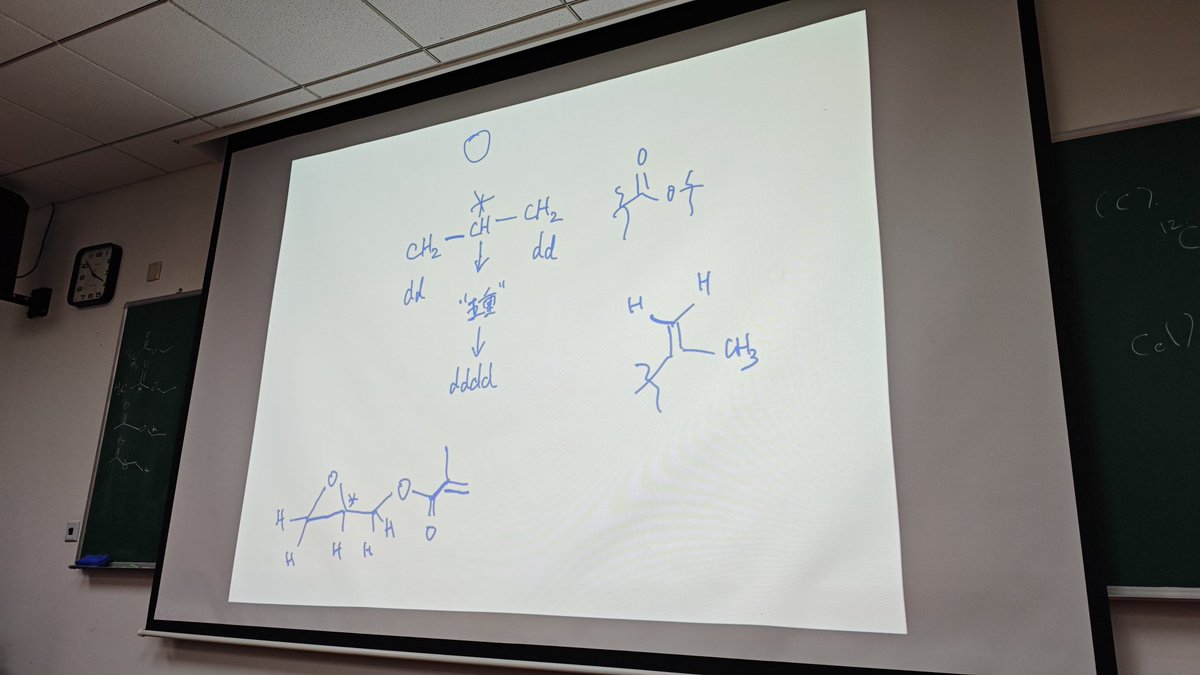 O
*
CH₂ — CH — CH₂
dd dd
↓
"五重"
↓
dddd
O
O
H H
CH₃
O
*
O
H
H
H
H
H
O
(C).
12
C